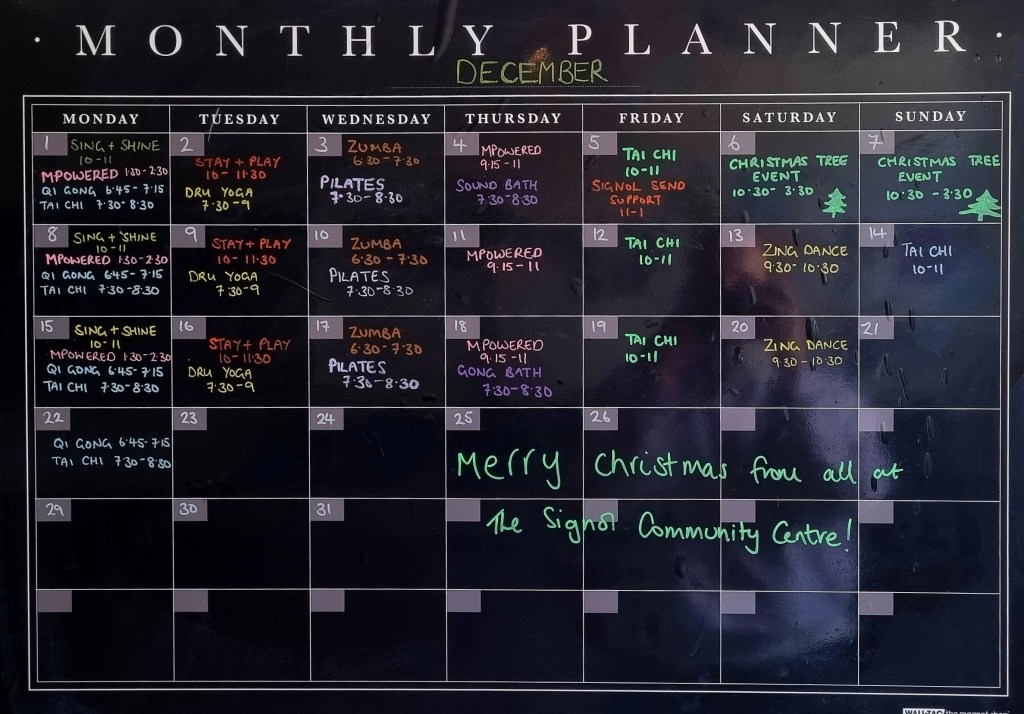 · MONTHLY PLANNER ·
DECEMBER
MONDAY TUESDAY WEDNESDAY THURSDAY FRIDAY SATURDAY SUNDAY
1 SING + SHINE
10-11
MPOWERED 1:30-2:30
QI GONG 6:45-7:15
TAI CHI 7:30-8:30
2
STAY + PLAY
10-11:30
DRU YOGA
7:30-9
3 ZUMBA
6:30-7:30
PILATES
7:30-8:30
4 MPOWERED
9:15-11
SOUND BATH
7:30-8:30
5
TAI CHI
10-11
SIGNOL SEND
SUPPORT
11-1
6
CHRISTMAS TREE
EVENT
10:30-3:30
7
CHRISTMAS TREE
EVENT
10:30-3:30
8 SING + SHINE
10-11
MPOWERED 1:30-2:30
QI GONG 6:45-7:15
TAI CHI 7:30-8:30
9 STAY + PLAY
10-11:30
DRU YOGA
7:30-9
10 ZUMBA
6:30-7:30
PILATES
7:30-8:30
11
MPOWERED
9:15-11
12 TAI CHI
10-11
13 ZING DANCE
9:30-10:30
14 TAI CHI
10-11
15 SING + SHINE
10-11
MPOWERED 1:30-2:30
QI GONG 6:45-7:15
TAI CHI 7:30-8:30
16
STAY + PLAY
10-11:30
DRU YOGA
7:30-9
17 ZUMBA
6:30-7:30
PILATES
7:30-8:30
18
MPOWERED
9:15-11
GONG BATH
7:30-8:30
19 TAI CHI
10-11
20 ZING DANCE
9:30-10:30
21
22
QI GONG 6:45-7:15
TAI CHI 7:30-8:30
23
24
25
26
Merry Christmas from all at
29
30
31
The Signol Community Centre!